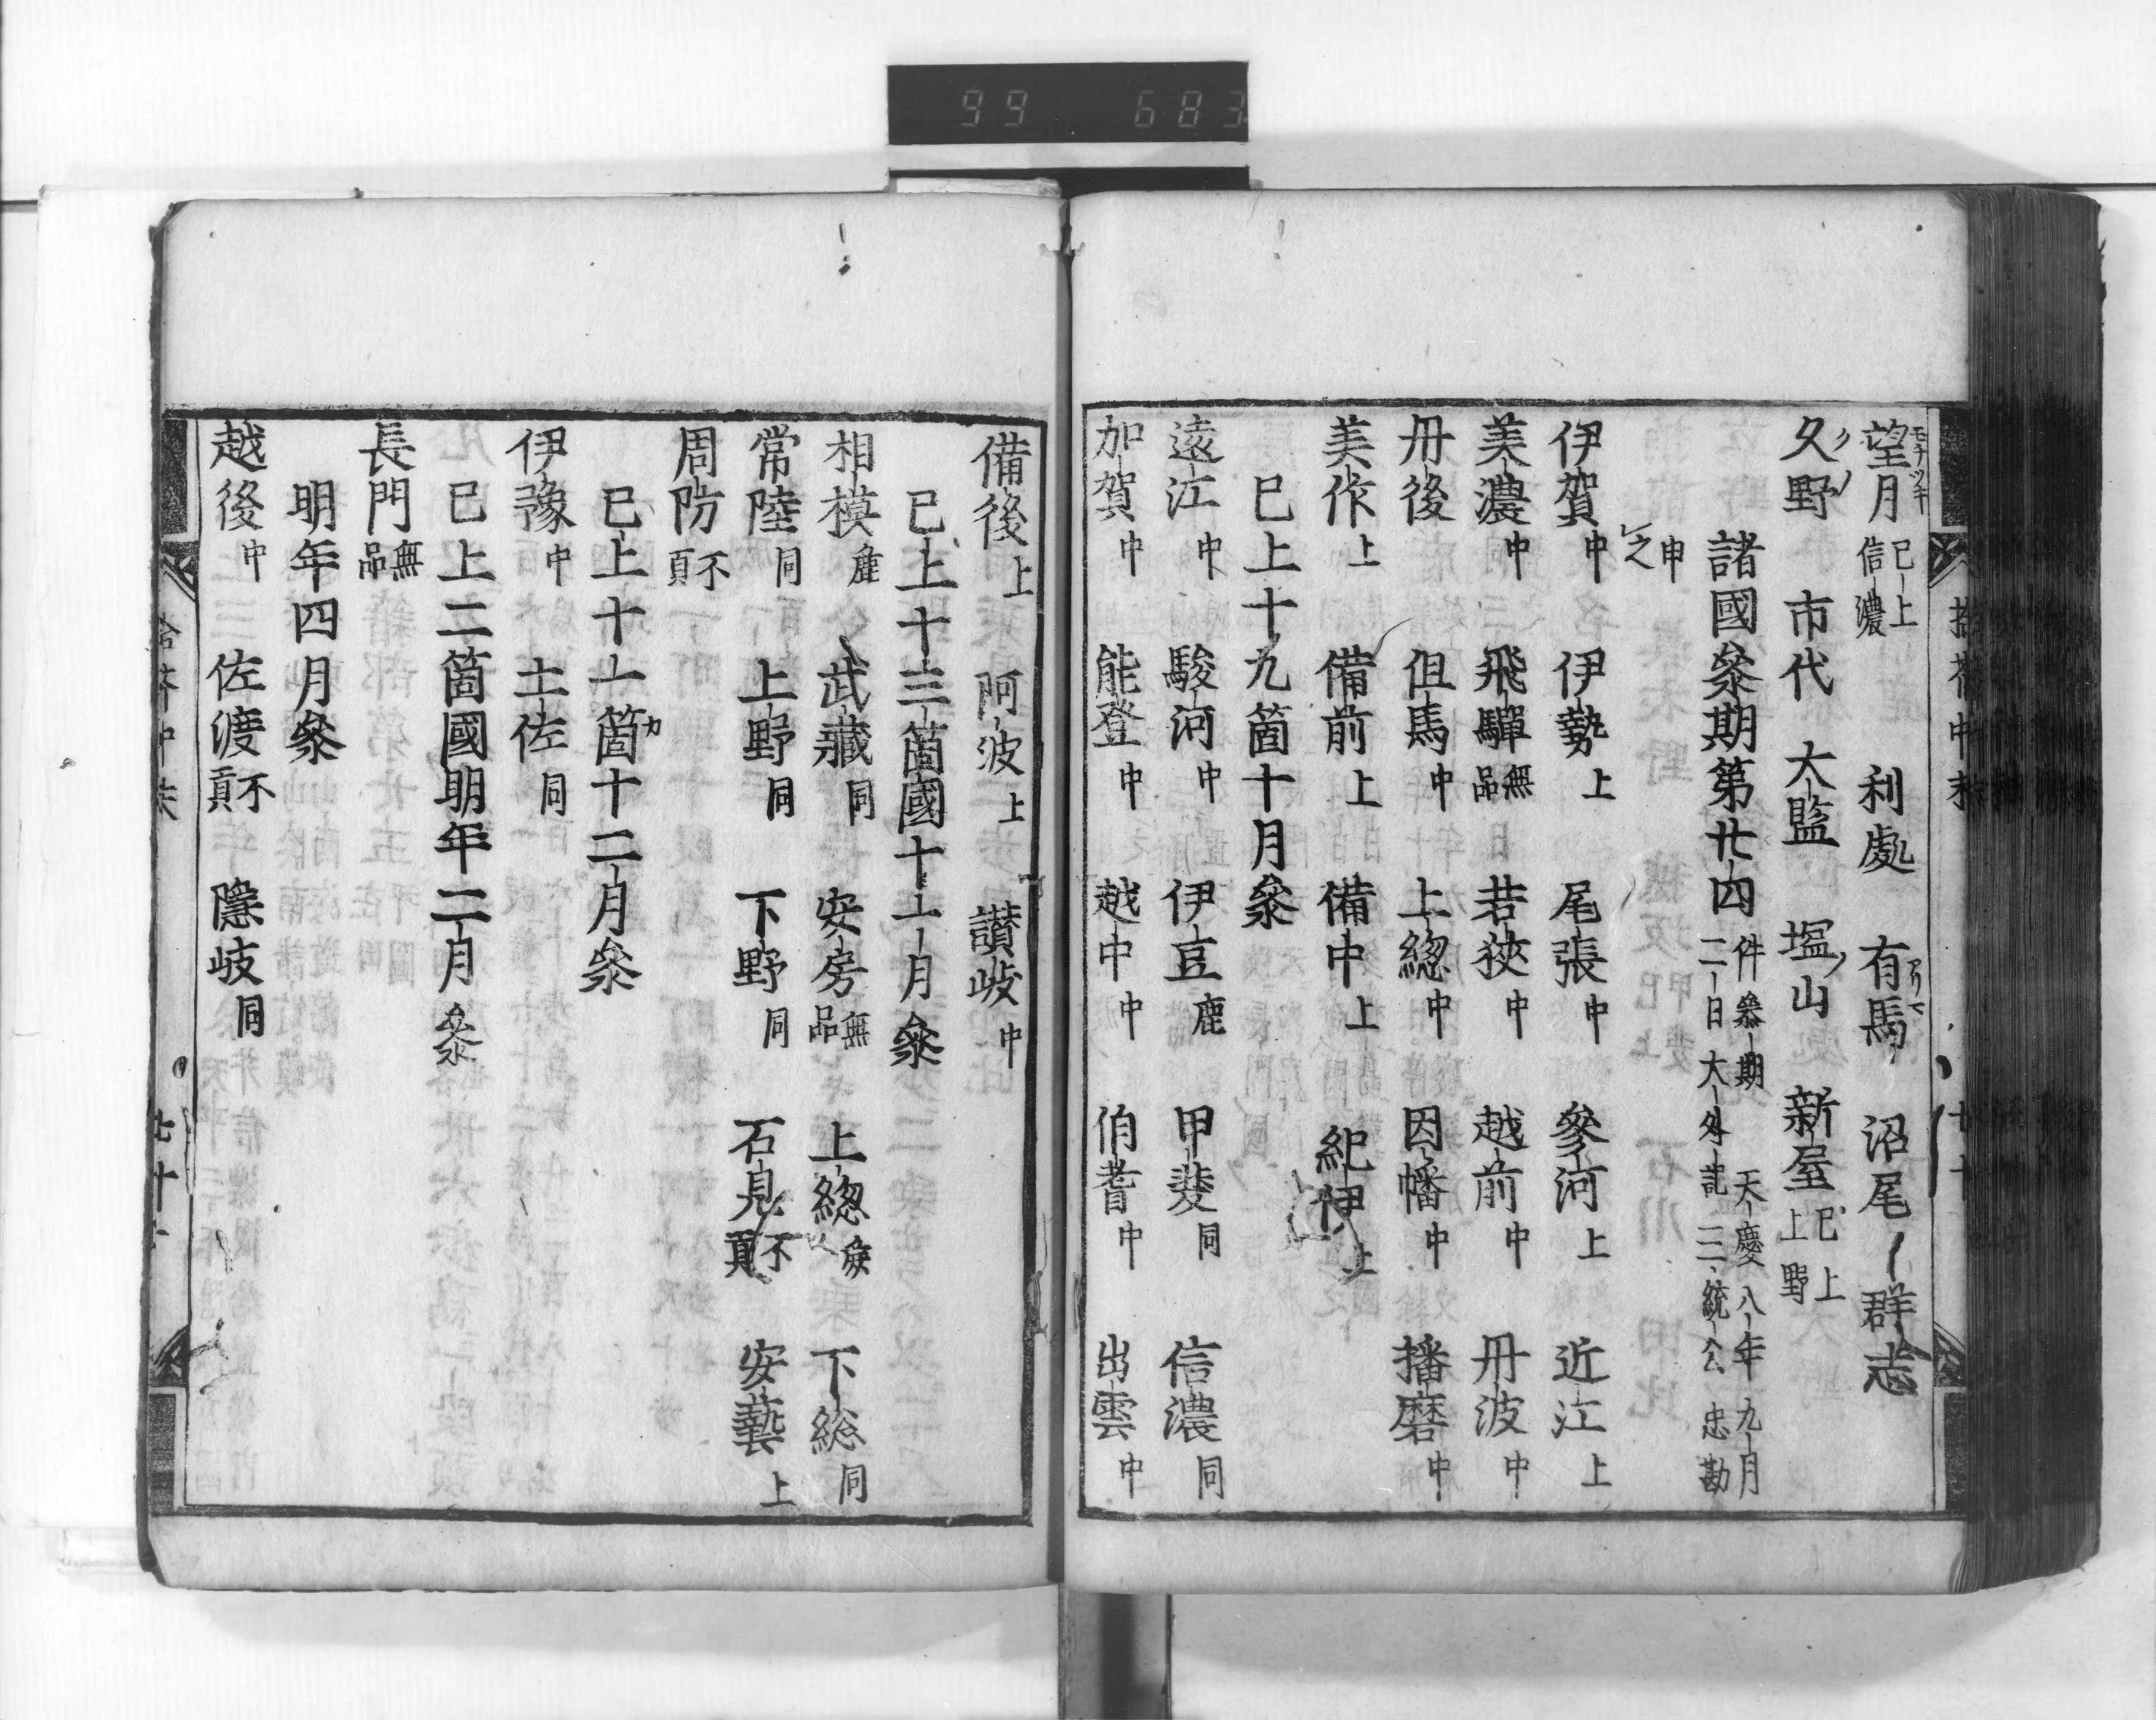 99 683
望月 モチツキ 已上信濃 利處 有馬 アリマ 沼尾 群志
久野 クノ 市代 大塩 塩山 新屋 已上上野
諸國叅期第廿四 件叅期天慶八年九月二日大外記三統公忠勘
申之
伊賀 中 伊勢 上 尾張 中 參河 上 近江 上
美濃 中 飛驒 無品 若狹 中 越前 中 丹波 中
丹後 中 但馬 中 上總 中 因幡 中 播磨 中
美作 上 備前 上 備中 上 紀伊 上
已上十九箇十月叅
遠江 中 駿河 中 伊豆 鹿 甲斐 同 信濃 同
加賀 中 能登 中 越中 中 伯耆 中 出雲 中
備後 上 阿波 上 讃岐 中
已上十三箇國十一月叅
相模 鹿 武藏 同 安房 無品 上總 下総 同
常陸 同 上野 同 下野 同 石見 不貢 安藝 上
周防 不貢
已上十一箇十二月叅
伊豫 中 土佐 同
已上二箇國明年二月叅
長門 無品
明年四月叅
越後 中 佐渡 不貢 隱岐 同